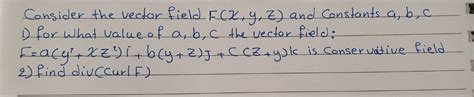 Consider the vector field F(x, y, z) and Constants a, b, c
1) for what value of a, b, c the vector field;
F=a(y²+xz²)i+b(y+z)j+c(z+y)k is Conservative field
2) find div(curl F)